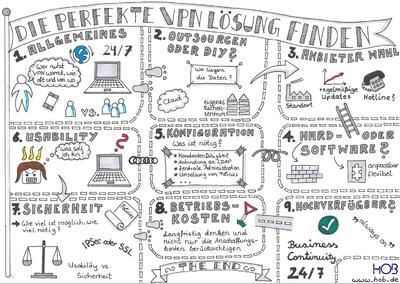 DIE PERFEKTE VPN LÖSUNG FINDEN
1. ALLGEMEINES
24/7
Wer nutzt
VPN womit, wie
oft und von wo
vs.
2. OUTSOURCEN
ODER DIY?
wo liegen
die Daten?
Cloud
eigenes
Rechen-
zentrum
3. ANBIETER WAHL
Standort
regelmäßige
Updates
Hotline?
6. USABILITY
was soll
ich tun?
5. KONFIGURATION
Was ist nötig?
Zentrale Administration
4. HARD- ODER
SOFTWARE?
anpassbar
flexibel
7. SICHERHEIT
Wie viel ist möglich, wie
viel nötig?
IPSec oder SSL
Usability vs.
Sicherheit
8. BETRIEBS-
KOSTEN
Langfristig denken und
nicht nur die Anschaffungs-
kosten berücksichtigen
THE END
9. HOCHVERFÜGBAR?
"always on"
Business
Continuity
24/7
HOB
www.hob.de